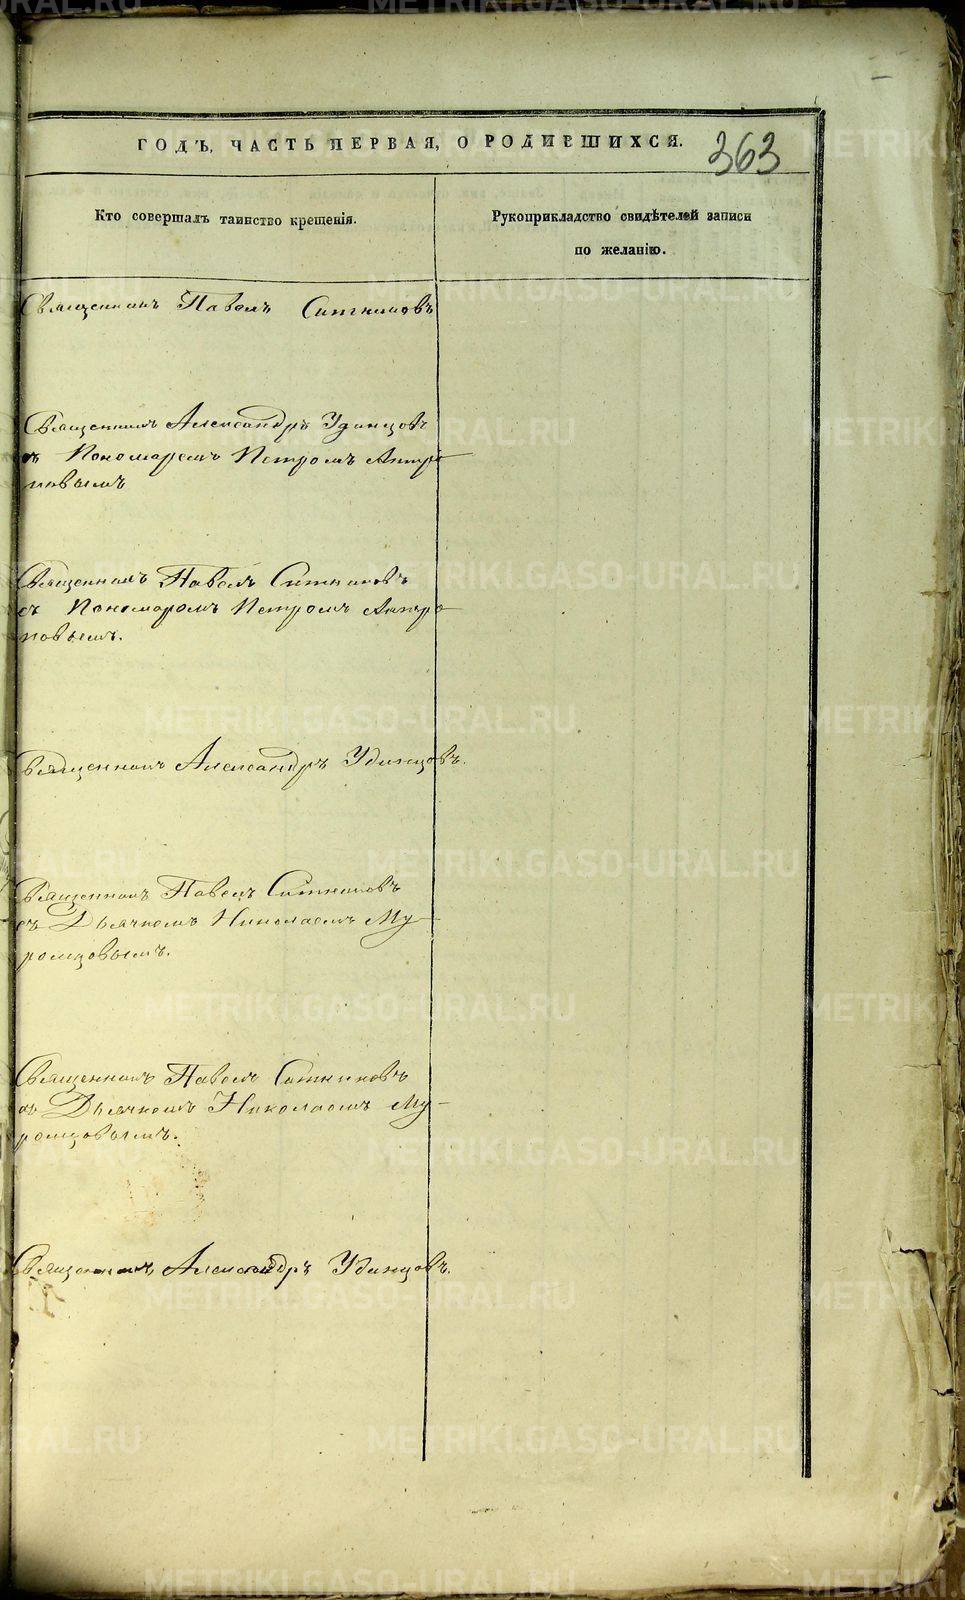 ГОДЪ, ЧАСТЬ ПЕРВАЯ, О РОДИВШИХСЯ.
363
Кто совершалъ таинство крещенія.
Рукоприкладство свидѣтелей записи
по желанію.
Священникъ Павелъ Ситниковъ
Священникъ Александръ Удинцовъ
съ Пономаремъ Петромъ Антро
повымъ
Священникъ Павелъ Ситниковъ
съ Пономаромъ Петромъ Антро
повымъ.
Священникъ Александръ Удинцовъ.
Священникъ Павелъ Ситниковъ
съ Дьячкомъ Николаемъ Му-
ромцовымъ.
Священникъ Павелъ Ситниковъ
съ Дьячкомъ Николаемъ Му-
ромцовымъ.
Священникъ Александръ Удинцовъ.
METRIKI.GASO-URAL.RU